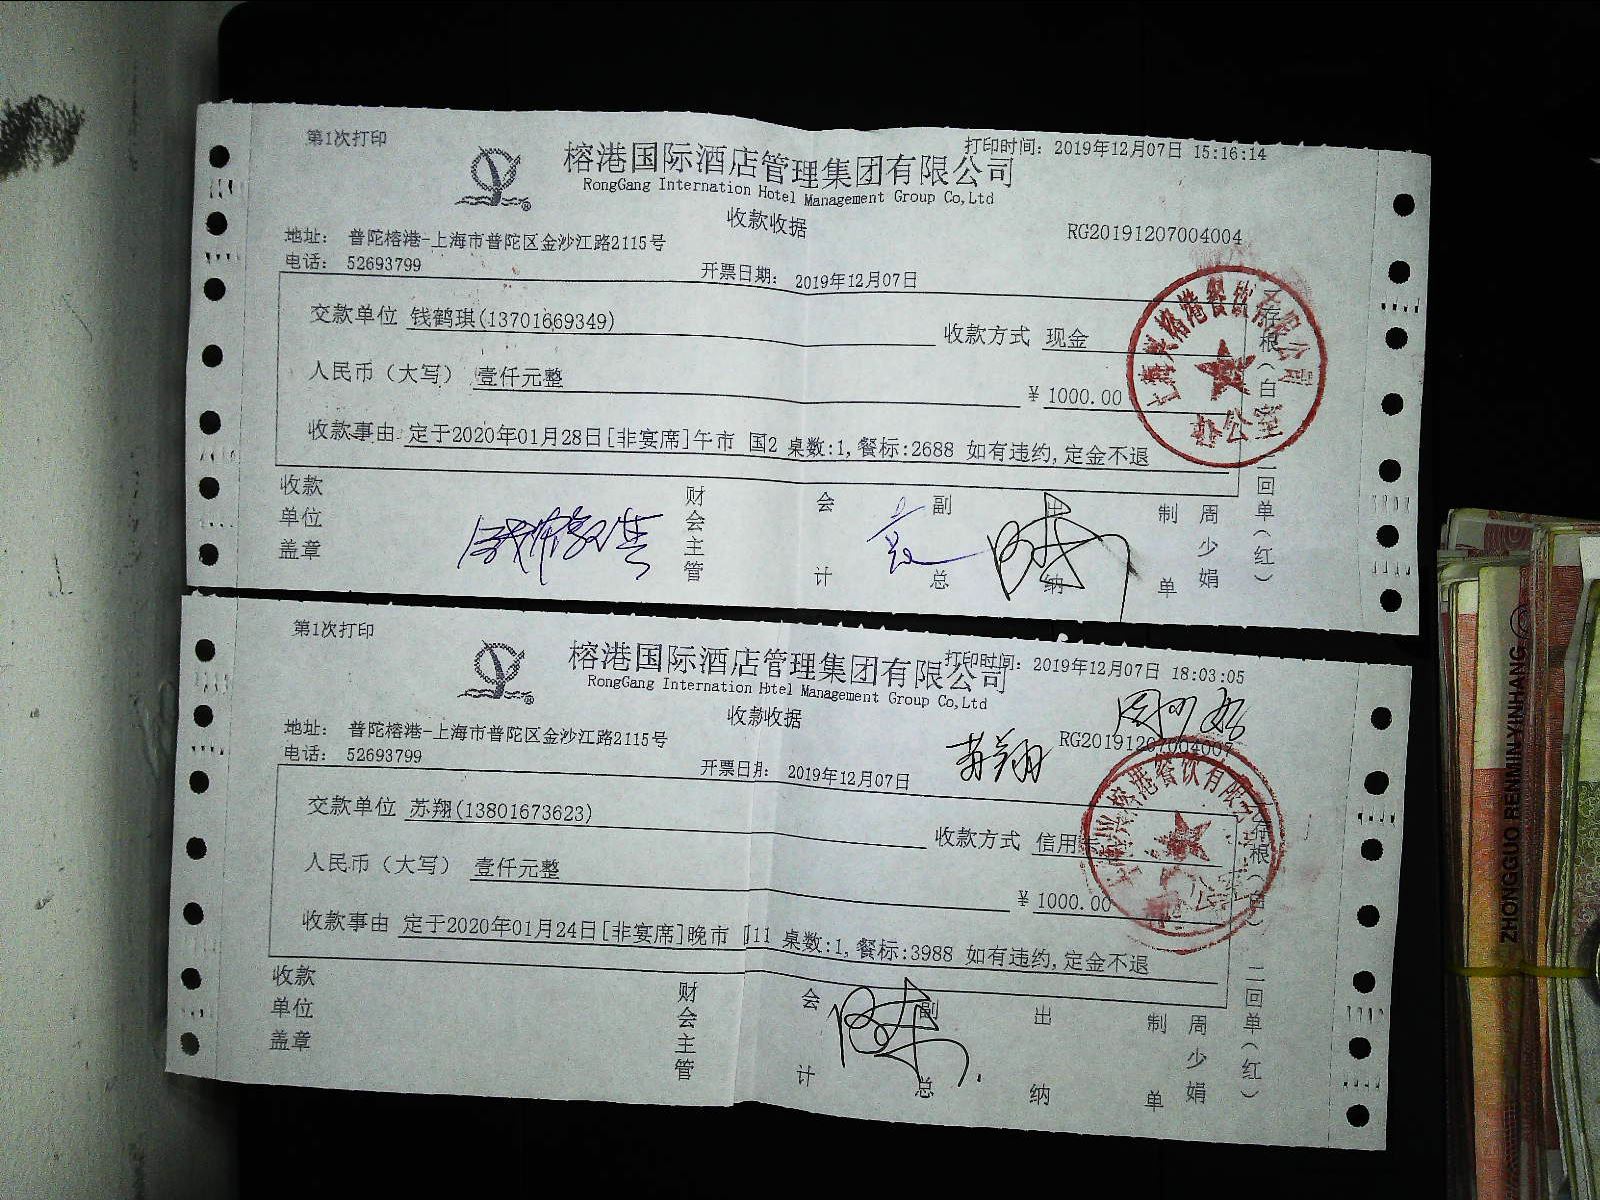 第1次打印
打印时间: 2019年12月07日 15:16:14
榕港国际酒店管理集团有限公司
RongGang Internation Hotel Management Group Co,Ltd
收款收据
RG20191207004004
地址: 普陀榕港-上海市普陀区金沙江路2115号
电话: 52693799
开票日期: 2019年12月07日
交款单位 钱鹤琪(13701669349)
收款方式 现金
人民币(大写) 壹仟元整
¥ 1000.00
收款事由 定于2020年01月28日[非宴席]午市 国2 桌数:1,餐标:2688 如有违约,定金不退
存根(白) 二回单(红)
收款单位盖章
财会主管
会计
副总
出纳
制单
周少娟
第1次打印
打印时间: 2019年12月07日 18:03:05
榕港国际酒店管理集团有限公司
RongGang Internation Hotel Management Group Co,Ltd
收款收据
苏翔
RG20191207004007
地址: 普陀榕港-上海市普陀区金沙江路2115号
电话: 52693799
开票日期: 2019年12月07日
交款单位 苏翔(13801673623)
收款方式 信用
人民币(大写) 壹仟元整
¥ 1000.00
收款事由 定于2020年01月24日[非宴席]晚市 11 桌数:1,餐标:3988 如有违约,定金不退
存根(白) 二回单(红)
收款单位盖章
财会主管
会计
副总
出纳
制单
周少娟
ZHONGGUO RENMIN YINHANG